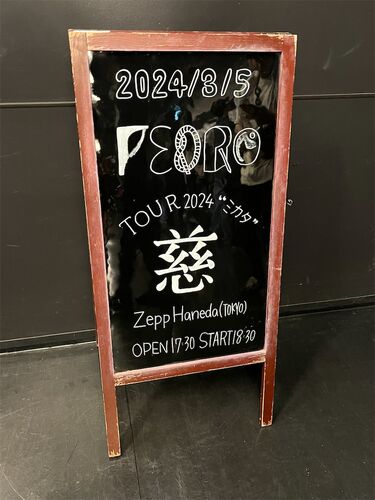 2024/3/5
PEDRO
TOUR 2024 "ミカタ"
慈
Zepp Haneda(TOKYO)
OPEN 17:30 START 18:30